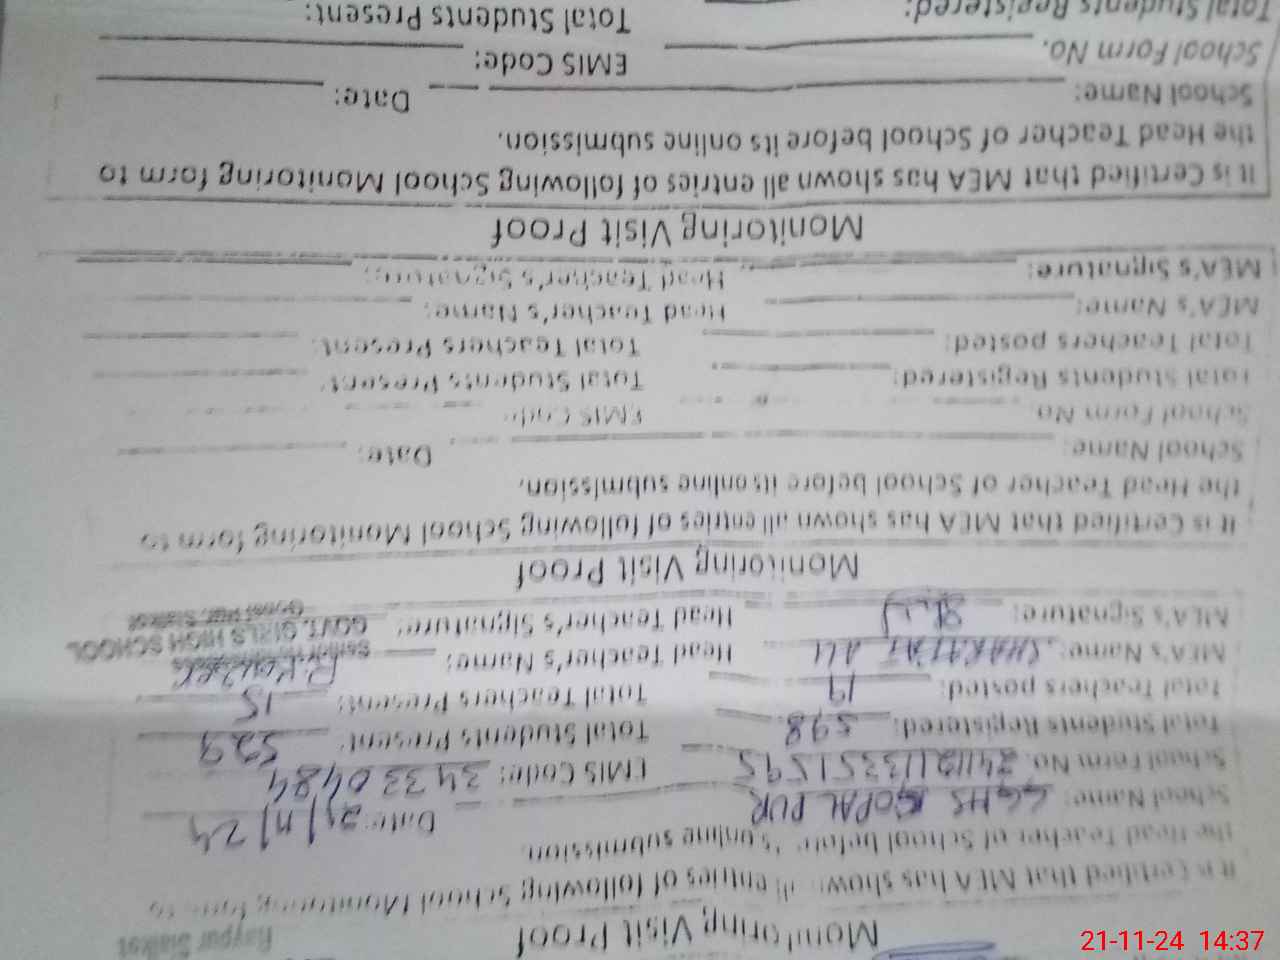 Raypur Sialkot
Monitoring Visit Proof
It is Certified that MEA has shown all entries of following School Monitoring form to
the Head Teacher of School before its online submission.
School Name: GGHS GOPAL PUR Date: 21/11/24
School Form No. EMIS Code: 34330484
Total Students Registered: 598 Total Students Present: 529
Total Teachers posted: 19 Total Teachers Present: 15
MEA's Name: SHAKHAT ALI Head Teacher's Name: R. Kousar
MEA's Signature: Head Teacher's Signature:
Senior
GOVT. GIRLS HIGH SCHOOL
Sialkot
Monitoring Visit Proof
It is Certified that MEA has shown all entries of following School Monitoring form to
the Head Teacher of School before its online submission.
School Name: Date:
School Form No. EMIS Code:
Total Students Registered: Total Students Present:
Total Teachers posted: Total Teachers Present:
MEA's Name: Head Teacher's Name:
MEA's Signature: Head Teacher's Signature:
Monitoring Visit Proof
It is Certified that MEA has shown all entries of following School Monitoring form to
the Head Teacher of School before its online submission.
School Name: Date:
School Form No. EMIS Code:
Total Students Registered: Total Students Present:
21-11-24 14:37